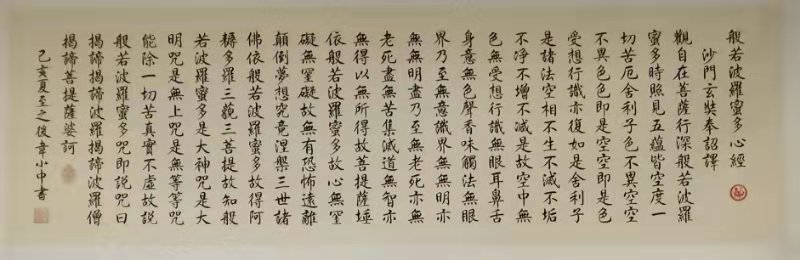 般若波羅蜜多心經
沙門玄奘奉詔譯
觀自在菩薩行深般若波羅
蜜多時照見五蘊皆空度一
切苦厄舍利子色不異空空
不異色色即是空空即是色
受想行識亦復如是舍利子
是諸法空相不生不滅不垢
不淨不增不減是故空中無
色無受想行識無眼耳鼻舌
身意無色聲香味觸法無眼
界乃至無意識界無無明亦
無無明盡乃至無老死亦無
老死盡無苦集滅道無智亦
無得以無所得故菩提薩埵
依般若波羅蜜多故心無罣
礙無罣礙故無有恐怖遠離
顛倒夢想究竟涅槃三世諸
佛依般若波羅蜜多故得阿
耨多羅三藐三菩提故知般
若波羅蜜多是大神咒是大
明咒是無上咒是無等等咒
能除一切苦真實不虛故說
般若波羅蜜多咒即說咒曰
揭諦揭諦波羅揭諦波羅僧
揭諦菩提薩婆訶
己亥夏至之後韋小中書